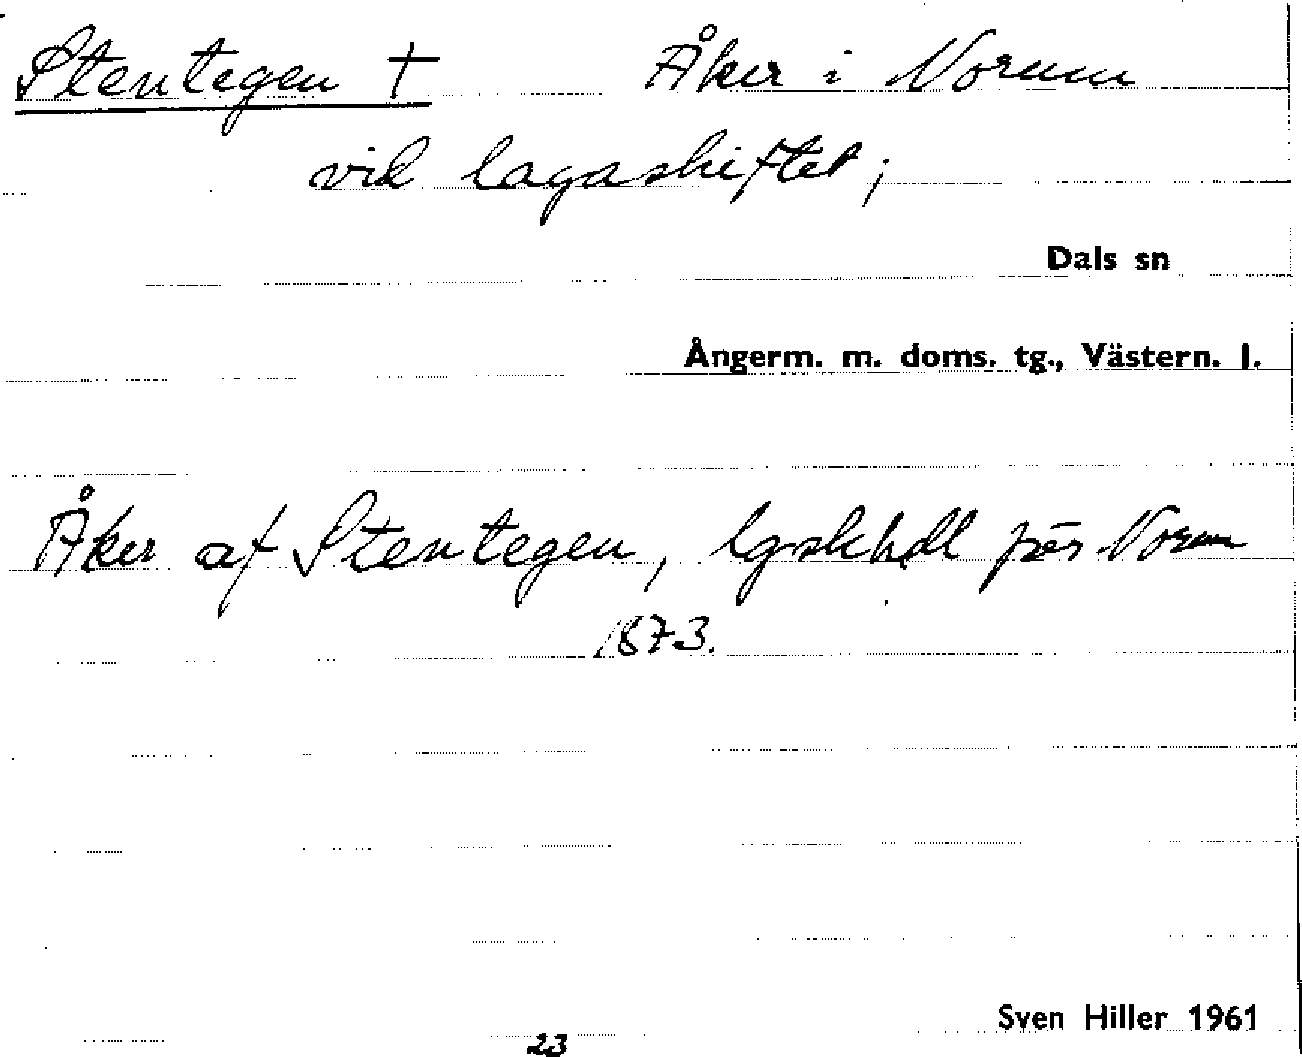 Stentegen † Åker i Norum
vid lagaskiftet;
Dals sn
Ångerm. m. doms. tg., Västern. l.
Åker af Stentegen, lgskhdl för Norum
1873.
Sven Hiller 1961
23